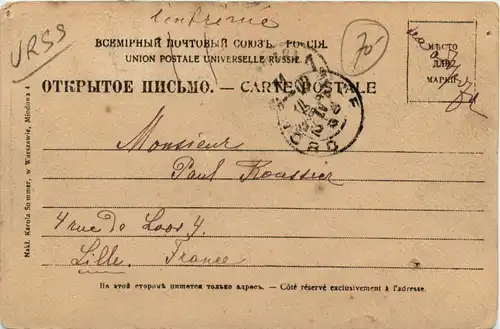 URSS
ВСЕМІРНЫЙ ПОЧТОВЫЙ СОЮЗЪ. РОССІЯ.
UNION POSTALE UNIVERSELLE RUSSIE
70
МѢСТО
ДЛЯ
МАРКИ
ОТКРЫТОЕ ПИСЬМО. — CARTE POSTALE
Monsieur
Paul
4 rue de Loos 4.
Lille. France
На этой сторонѣ пишется только адресъ. — Côté réservé exclusivement à l'adresse.
Nakł. Karola Sommer, w Warszawie, Miodowa 4